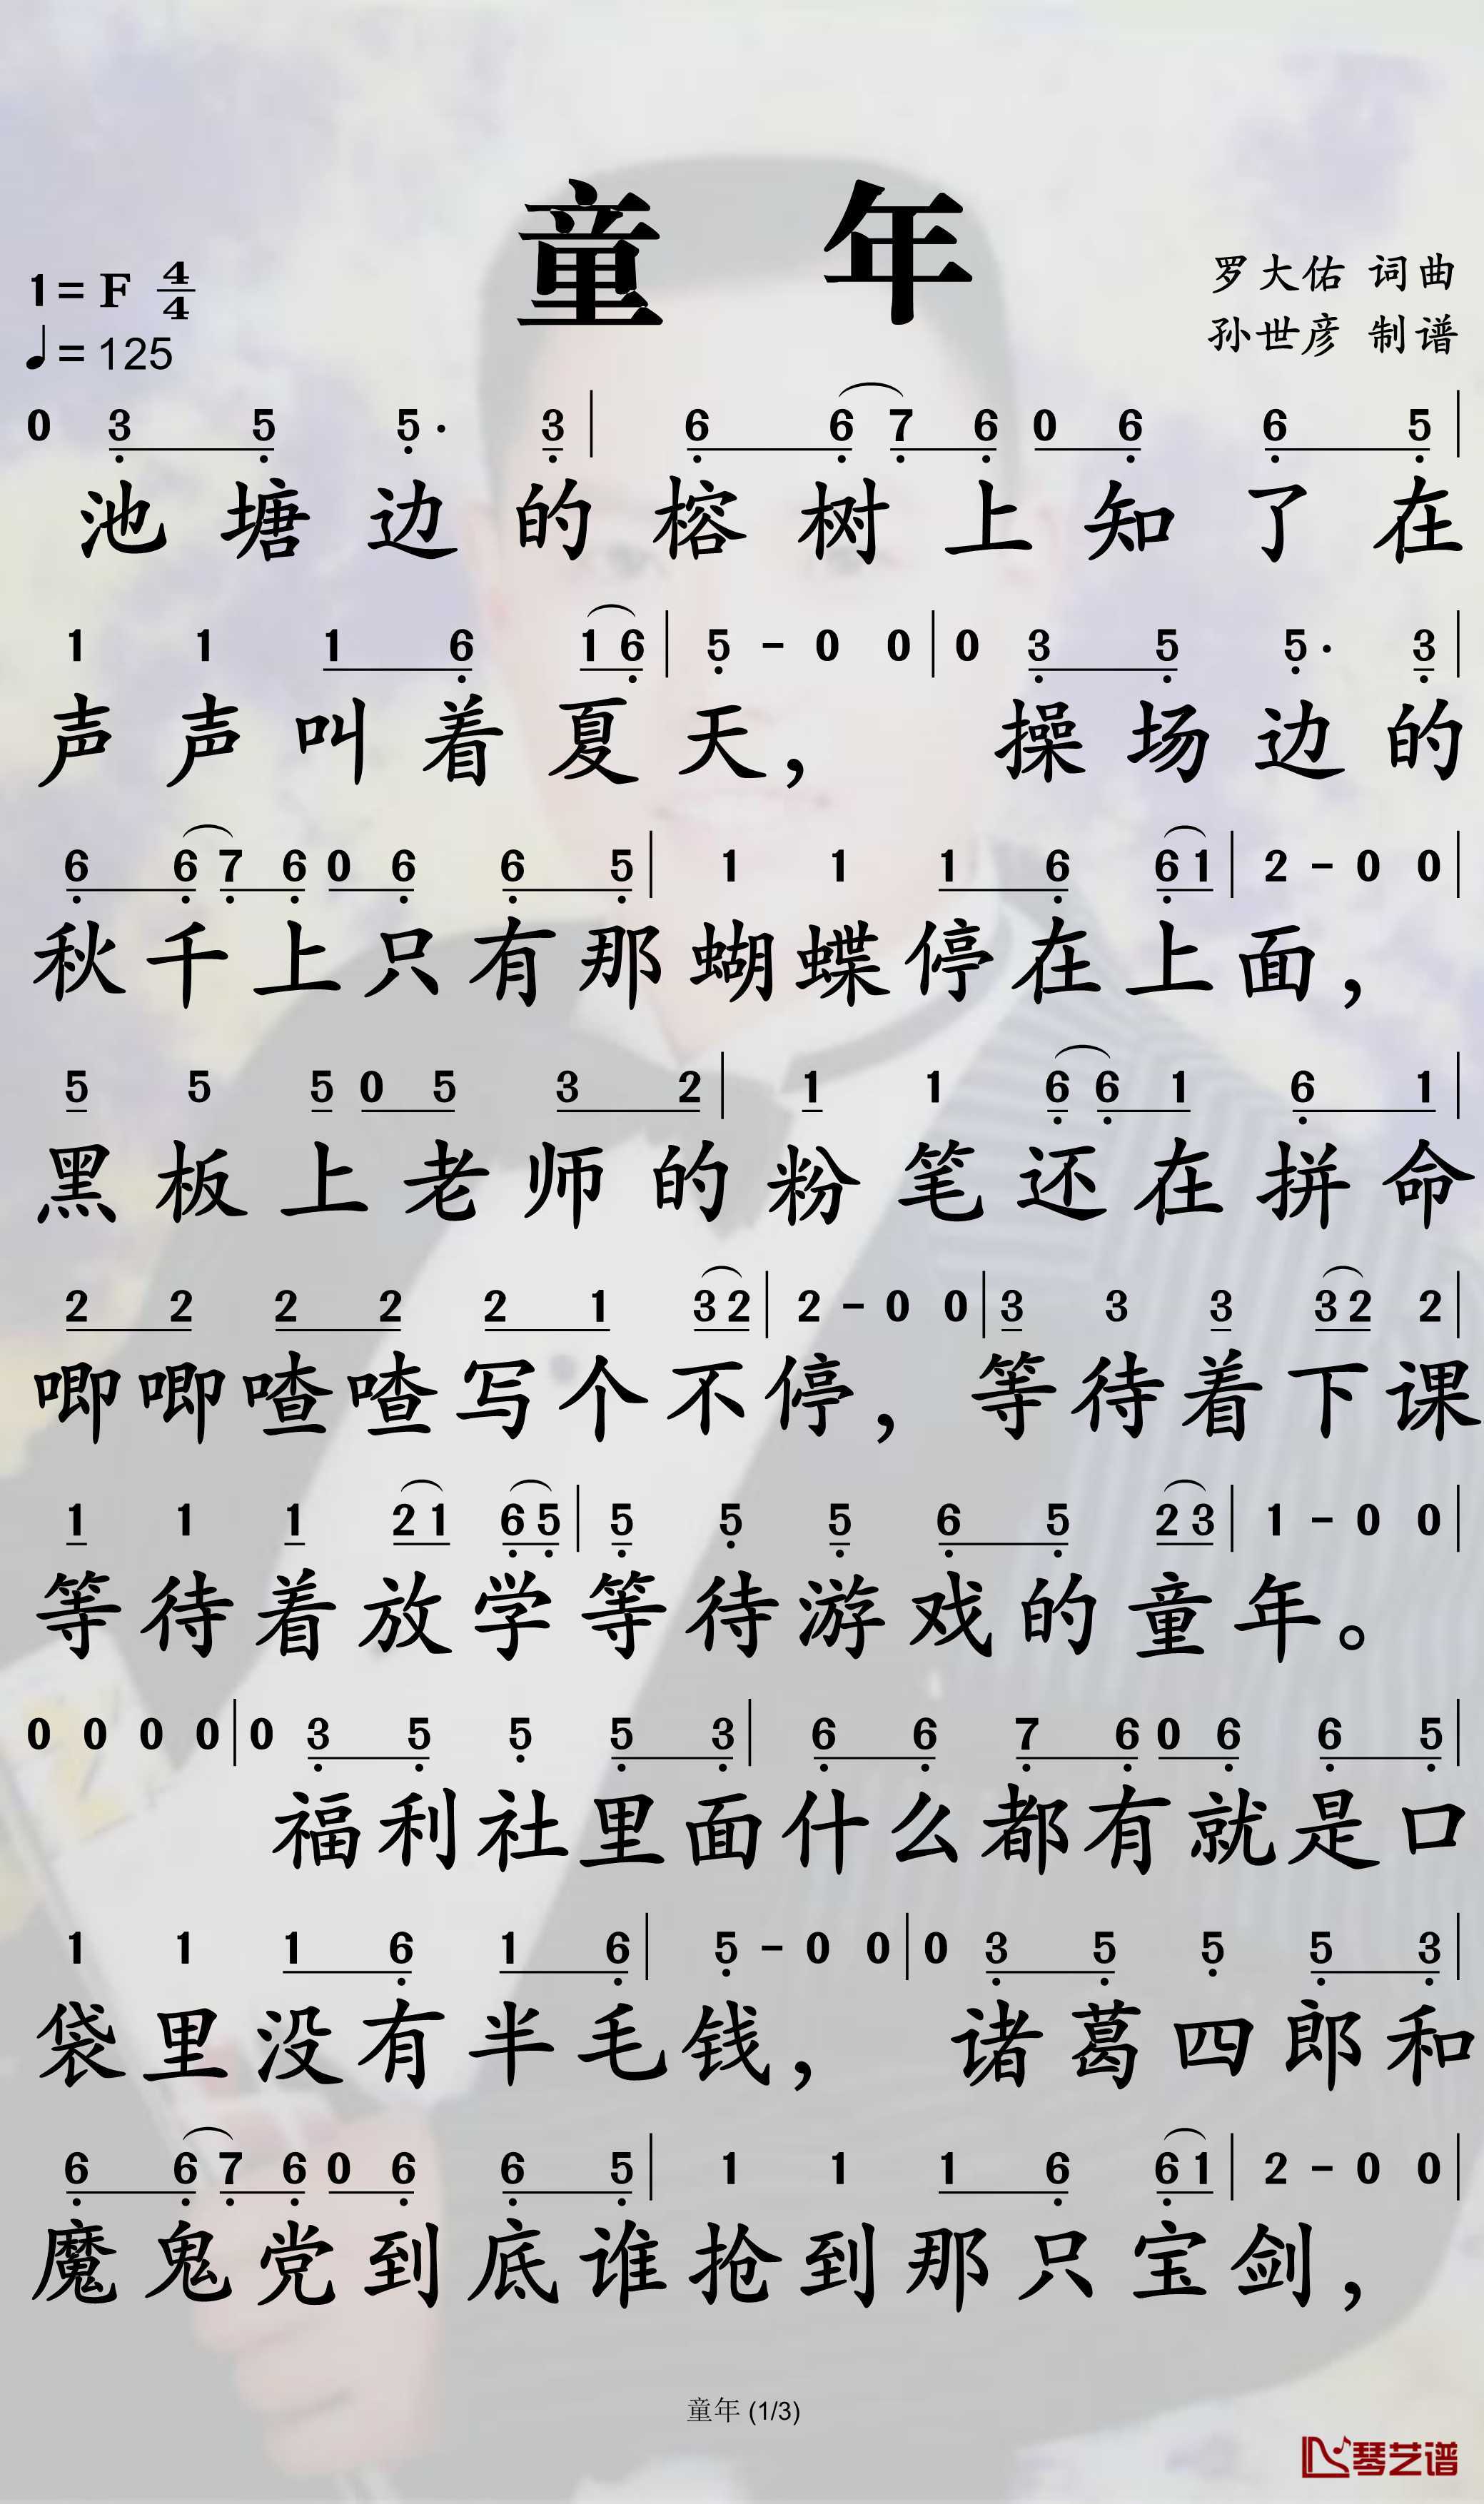 童 年
1=F 4/4
♩=125
罗大佑 词曲
孙世彦 制谱
0 3 5 5· 3 | 6 6 7 6 0 6 6 5 |
池塘边的榕树上知了在
1 1 1 6 1 6 | 5 - 0 0 | 0 3 5 5· 3 |
声声叫着夏天， 操场边的
6 6 7 6 0 6 6 5 | 1 1 1 6 6 1 | 2 - 0 0 |
秋千上只有那蝴蝶停在上面，
5 5 5 0 5 3 2 | 1 1 6 6 1 6 1 |
黑板上老师的粉笔还在拼命
2 2 2 2 2 1 3 2 | 2 - 0 0 | 3 3 3 3 2 2 |
唧唧喳喳写个不停，等待着下课
1 1 1 2 1 6 5 | 5 5 5 6 5 2 3 | 1 - 0 0 |
等待着放学等待游戏的童年。
0 0 0 0 | 0 3 5 5 5 3 | 6 6 7 6 0 6 6 5 |
福利社里面什么都有就是口
1 1 1 6 1 6 | 5 - 0 0 | 0 3 5 5 5 3 |
袋里没有半毛钱， 诸葛四郎和
6 6 7 6 0 6 6 5 | 1 1 1 6 6 1 | 2 - 0 0 |
魔鬼党到底谁抢到那只宝剑，
童年 (1/3)
琴艺谱